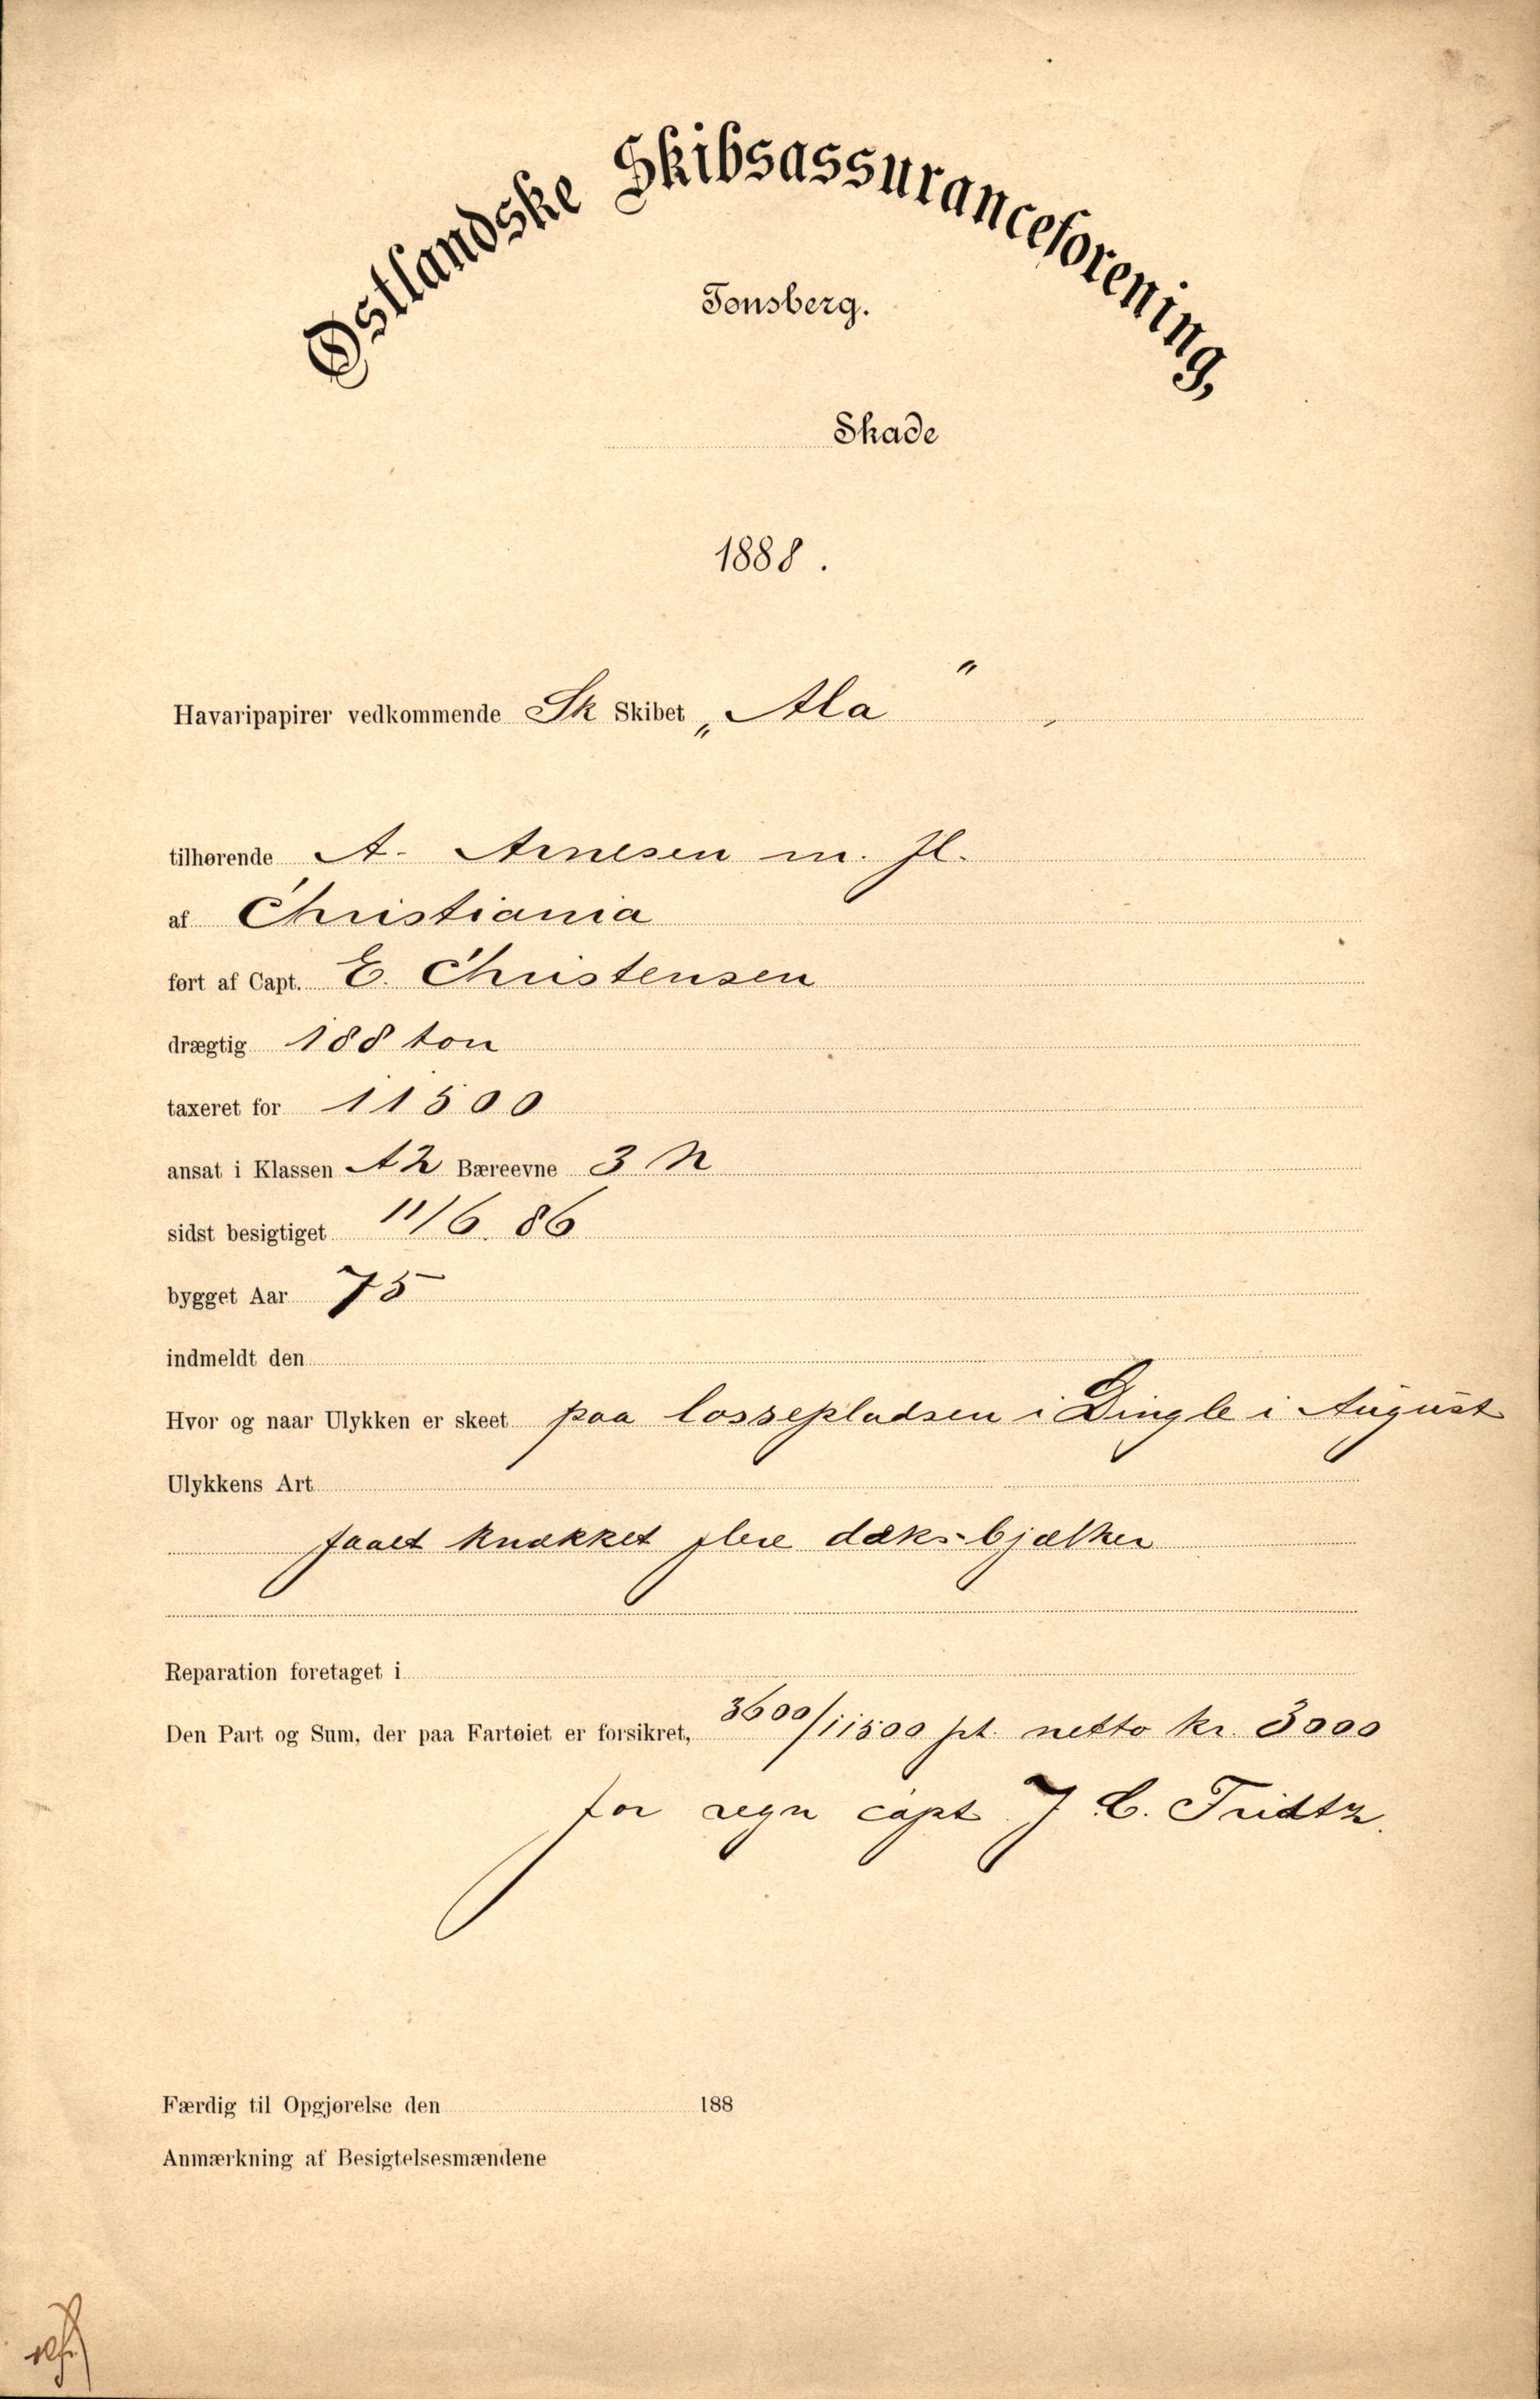 Østlandske Skibsassuranceforening,
Tønsberg.
Skade
1888.
Havaripapirer vedkommende Sk Skibet „Ala"
tilhørende A. Arnesen m. fl.
af Christiania
ført af Capt. E. Christensen
drægtig 188 ton
taxeret for 11500
ansat i Klassen A2 Bæreevne 3 N
sidst besigtiget 11/6. 86
bygget Aar 75
indmeldt den
Hvor og naar Ulykken er skeet paa lossepladsen i Dingle i August
Ulykkens Art
faaet knækket flere dæksbjælker
Reparation foretaget i
Den Part og Sum, der paa Fartøiet er forsikret, 3600/11500 pt. netto kr. 3000
for regn capt J C. Tridtz.
Færdig til Opgjørelse den 188
Anmærkning af Besigtelsesmændene